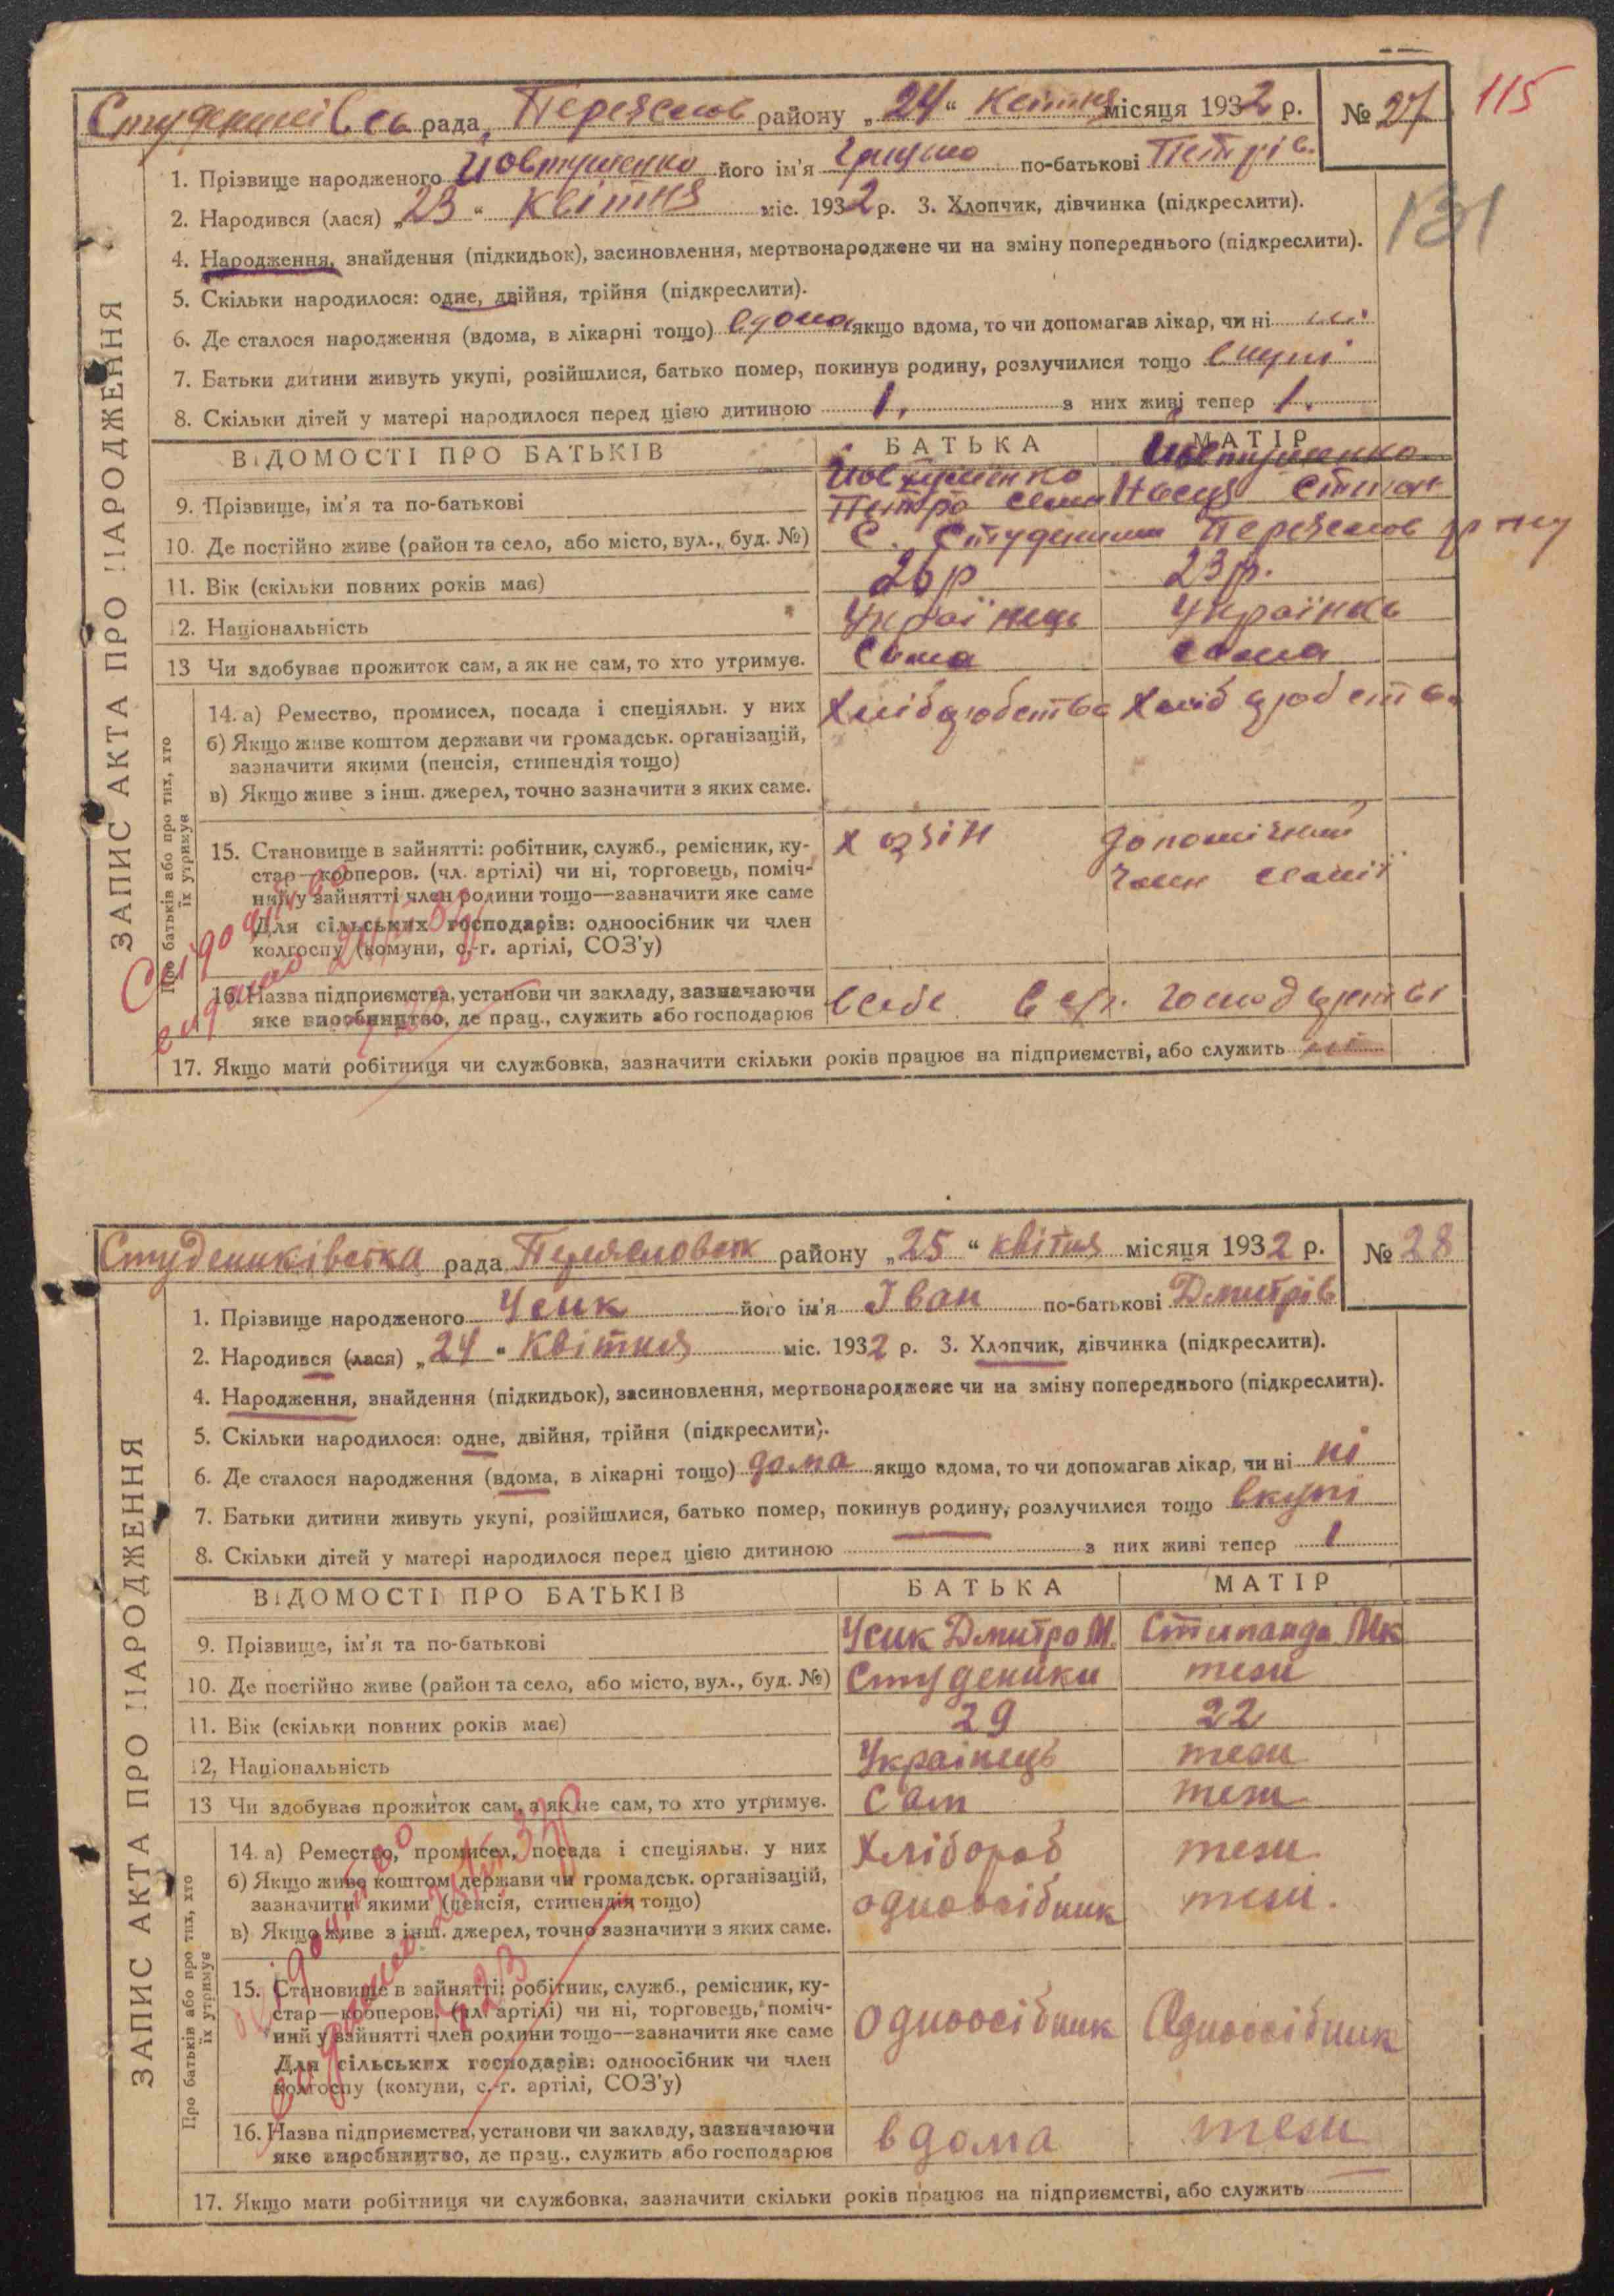 рада, Переяслов району „24“ Квітня місяця 1932 р. № 27 115
1. Прізвище народженого Йовтушенко його ім'я Грицько по-батькові Петрів.
131
2. Народився (лася) „23“ Квітня міс. 1932 р. 3. Хлопчик, дівчинка (підкреслити).
4. Народження, знайдення (підкидьок), засиновлення, мертвонароджене чи на зміну попереднього (підкреслити).
5. Скільки народилося: одне, двійня, трійня (підкреслити).
6. Де сталося народження (вдома, в лікарні тощо) вдома якщо вдома, то чи допомагав лікар, чи ні ні.
7. Батьки дитини живуть укупі, розійшлися, батько помер, покинув родину, розлучилися тощо вкупі
8. Скільки дітей у матері народилося перед цією дитиною 1, з них живі тепер 1.
ЗАПИС АКТА ПРО НАРОДЖЕННЯ
ВІДОМОСТІ ПРО БАТЬКІВ БАТЬКА МАТІР
9. Прізвище, ім'я та по-батькові Йовтушенко Петро Йовтушенко
10. Де постійно живе (район та село, або місто, вул., буд. №) С. Студеники Переяслов р-ну
11. Вік (скільки повних років має) 26 р 23 р.
12. Національність Українець Українка
13 Чи здобуває прожиток сам, а як не сам, то хто утримує. Сама сама
Про батьків або про тих, хто їх утримує
14. а) Ремество, промисел, посада і спеціяльн. у них Хлібороbство Хліборобство
б) Якщо живе коштом держави чи громадськ. організацій,
зазначити якими (пенсія, стипендія тощо)
в) Якщо живе з інш. джерел, точно зазначити з яких саме.
15. Становище в зайнятті: робітник, служб., ремісник, ку-
стар—кооперов. (чл. артілі) чи ні, торговець, поміч-
ний у зайнятті член родини тощо—зазначити яке саме
Для сільських господарів: одноосібник чи член
колгоспу (комуни, с.-г. артілі, СОЗ'у)
хозяїн допомічний член сем'ї
16. Назва підприємства, установи чи закладу, зазначаючи
яке виробництво, де прац., служить або господарює
в себе в с/г. господарстві
17. Якщо мати робітниця чи службовка, зазначити скільки років працює на підприємстві, або служить ні
Студениківська рада, району „25“ квітня місяця 1932 р. № 28
1. Прізвище народженого Усик його ім'я Іван по-батькові Дмитрів
2. Народився (лася) „24“ Квітня міс. 1932 р. 3. Хлопчик, дівчинка (підкреслити).
4. Народження, знайдення (підкидьок), засиновлення, мертвонароджене чи на зміну попереднього (підкреслити).
5. Скільки народилося: одне, двійня, трійня (підкреслити).
6. Де сталося народження (вдома, в лікарні тощо) дома якщо вдома, то чи допомагав лікар, чи ні ні
7. Батьки дитини живуть укупі, розійшлися, батько помер, покинув родину, розлучилися тощо вкупі
8. Скільки дітей у матері народилося перед цією дитиною з них живі тепер 1
ЗАПИС АКТА ПРО НАРОДЖЕННЯ
ВІДОМОСТІ ПРО БАТЬКІВ БАТЬКА МАТІР
9. Прізвище, ім'я та по-батькові Усик Дмитро М.
10. Де постійно живе (район та село, або місто, вул., буд. №) Студеники тежи
11. Вік (скільки повних років має) 29 22
12. Національність Українець тежи
13 Чи здобуває прожиток сам, а як не сам, то хто утримує. Сам тежи
Про батьків або про тих, хто їх утримує
14. а) Ремество, промисел, посада і спеціяльн. у них Хлібороб тежи
б) Якщо живе коштом держави чи громадськ. організацій,
зазначити якими (пенсія, стипендія тощо) одноосібник тежи.
в) Якщо живе з інш. джерел, точно зазначити з яких саме.
15. Становище в зайнятті: робітник, служб., ремісник, ку-
стар—кооперов. (чл. артілі) чи ні, торговець, поміч-
ний у зайнятті член родини тощо—зазначити яке саме
Для сільських господарів: одноосібник чи член
колгоспу (комуни, с.-г. артілі, СОЗ'у)
одноосібник Одноосібник
16. Назва підприємства, установи чи закладу, зазначаючи
яке виробництво, де прац., служить або господарює
вдома тежи
17. Якщо мати робітниця чи службовка, зазначити скільки років працює на підприємстві, або служить